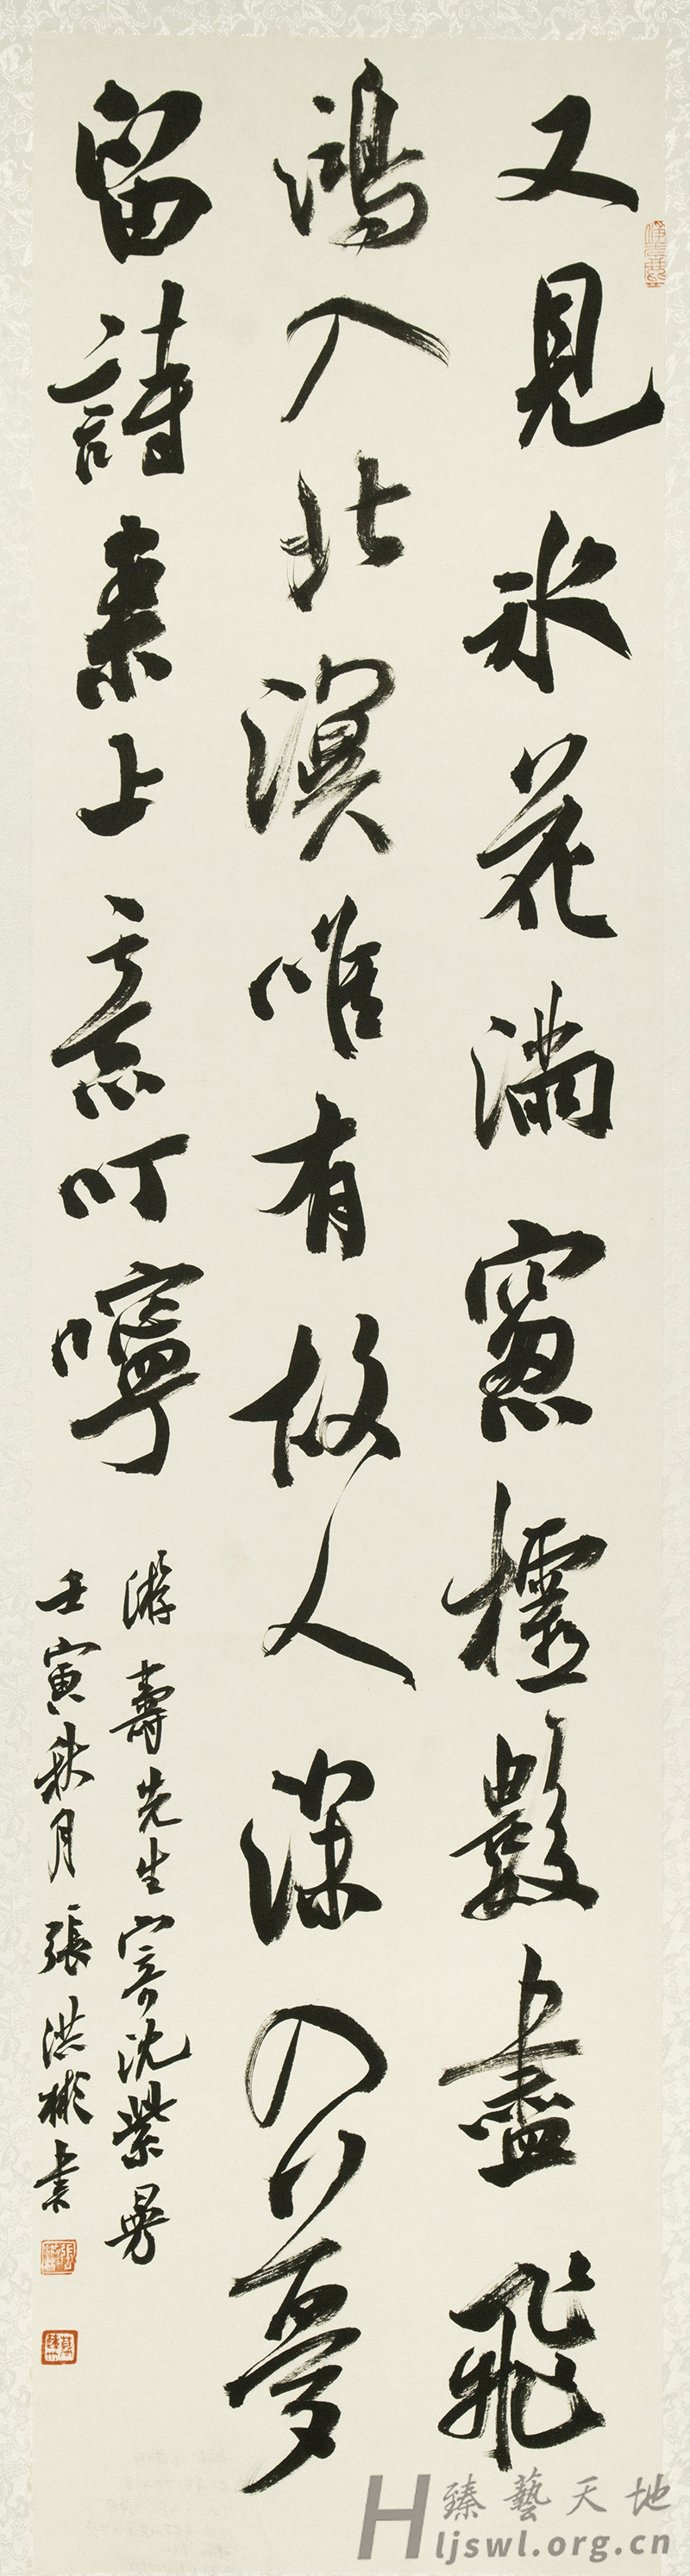 又見冰花滿窻櫺數盡飛
鴻入北溟唯有故人深入夢
留詩素上意叮嚀
游壽先生寄沈紫曼
壬寅秋月張洪彬書
臻藝天地
Hljswl.org.cn